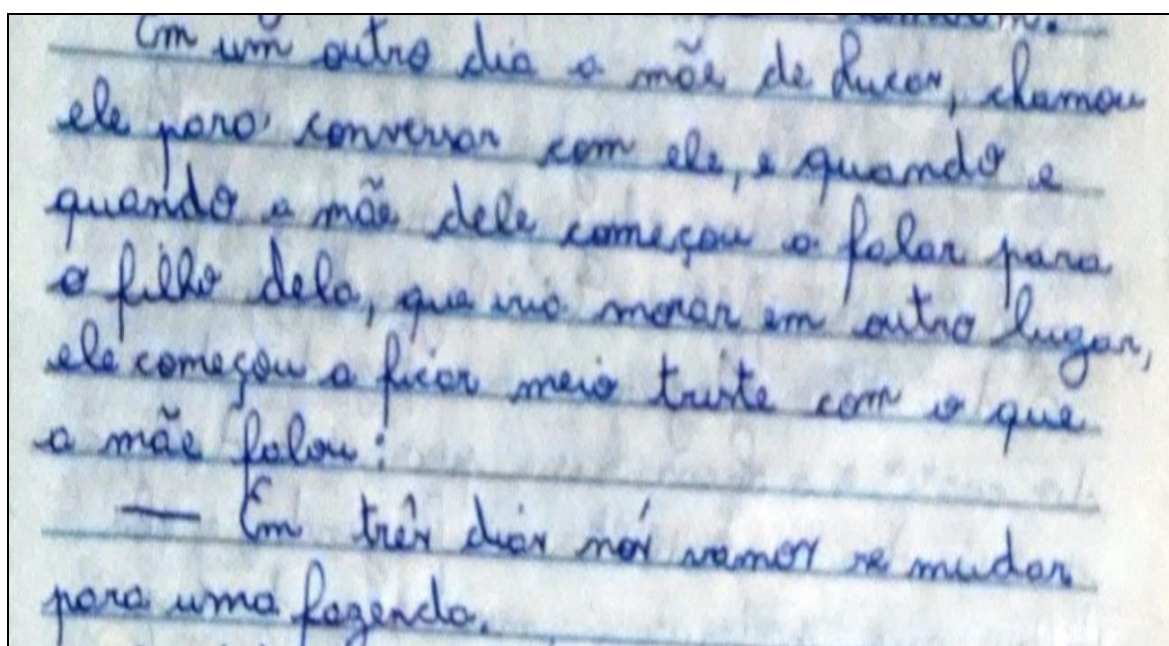 Em um outro dia a mãe de Lucas, chamou
ele para conversar com ele, e quando e
quando a mãe dele começou a falar para
o filho dela, que iria morar em outro lugar,
ele começou a ficar meio triste com o que
a mãe falou:
— Em três dias nós vamos se mudar
para uma fazenda.